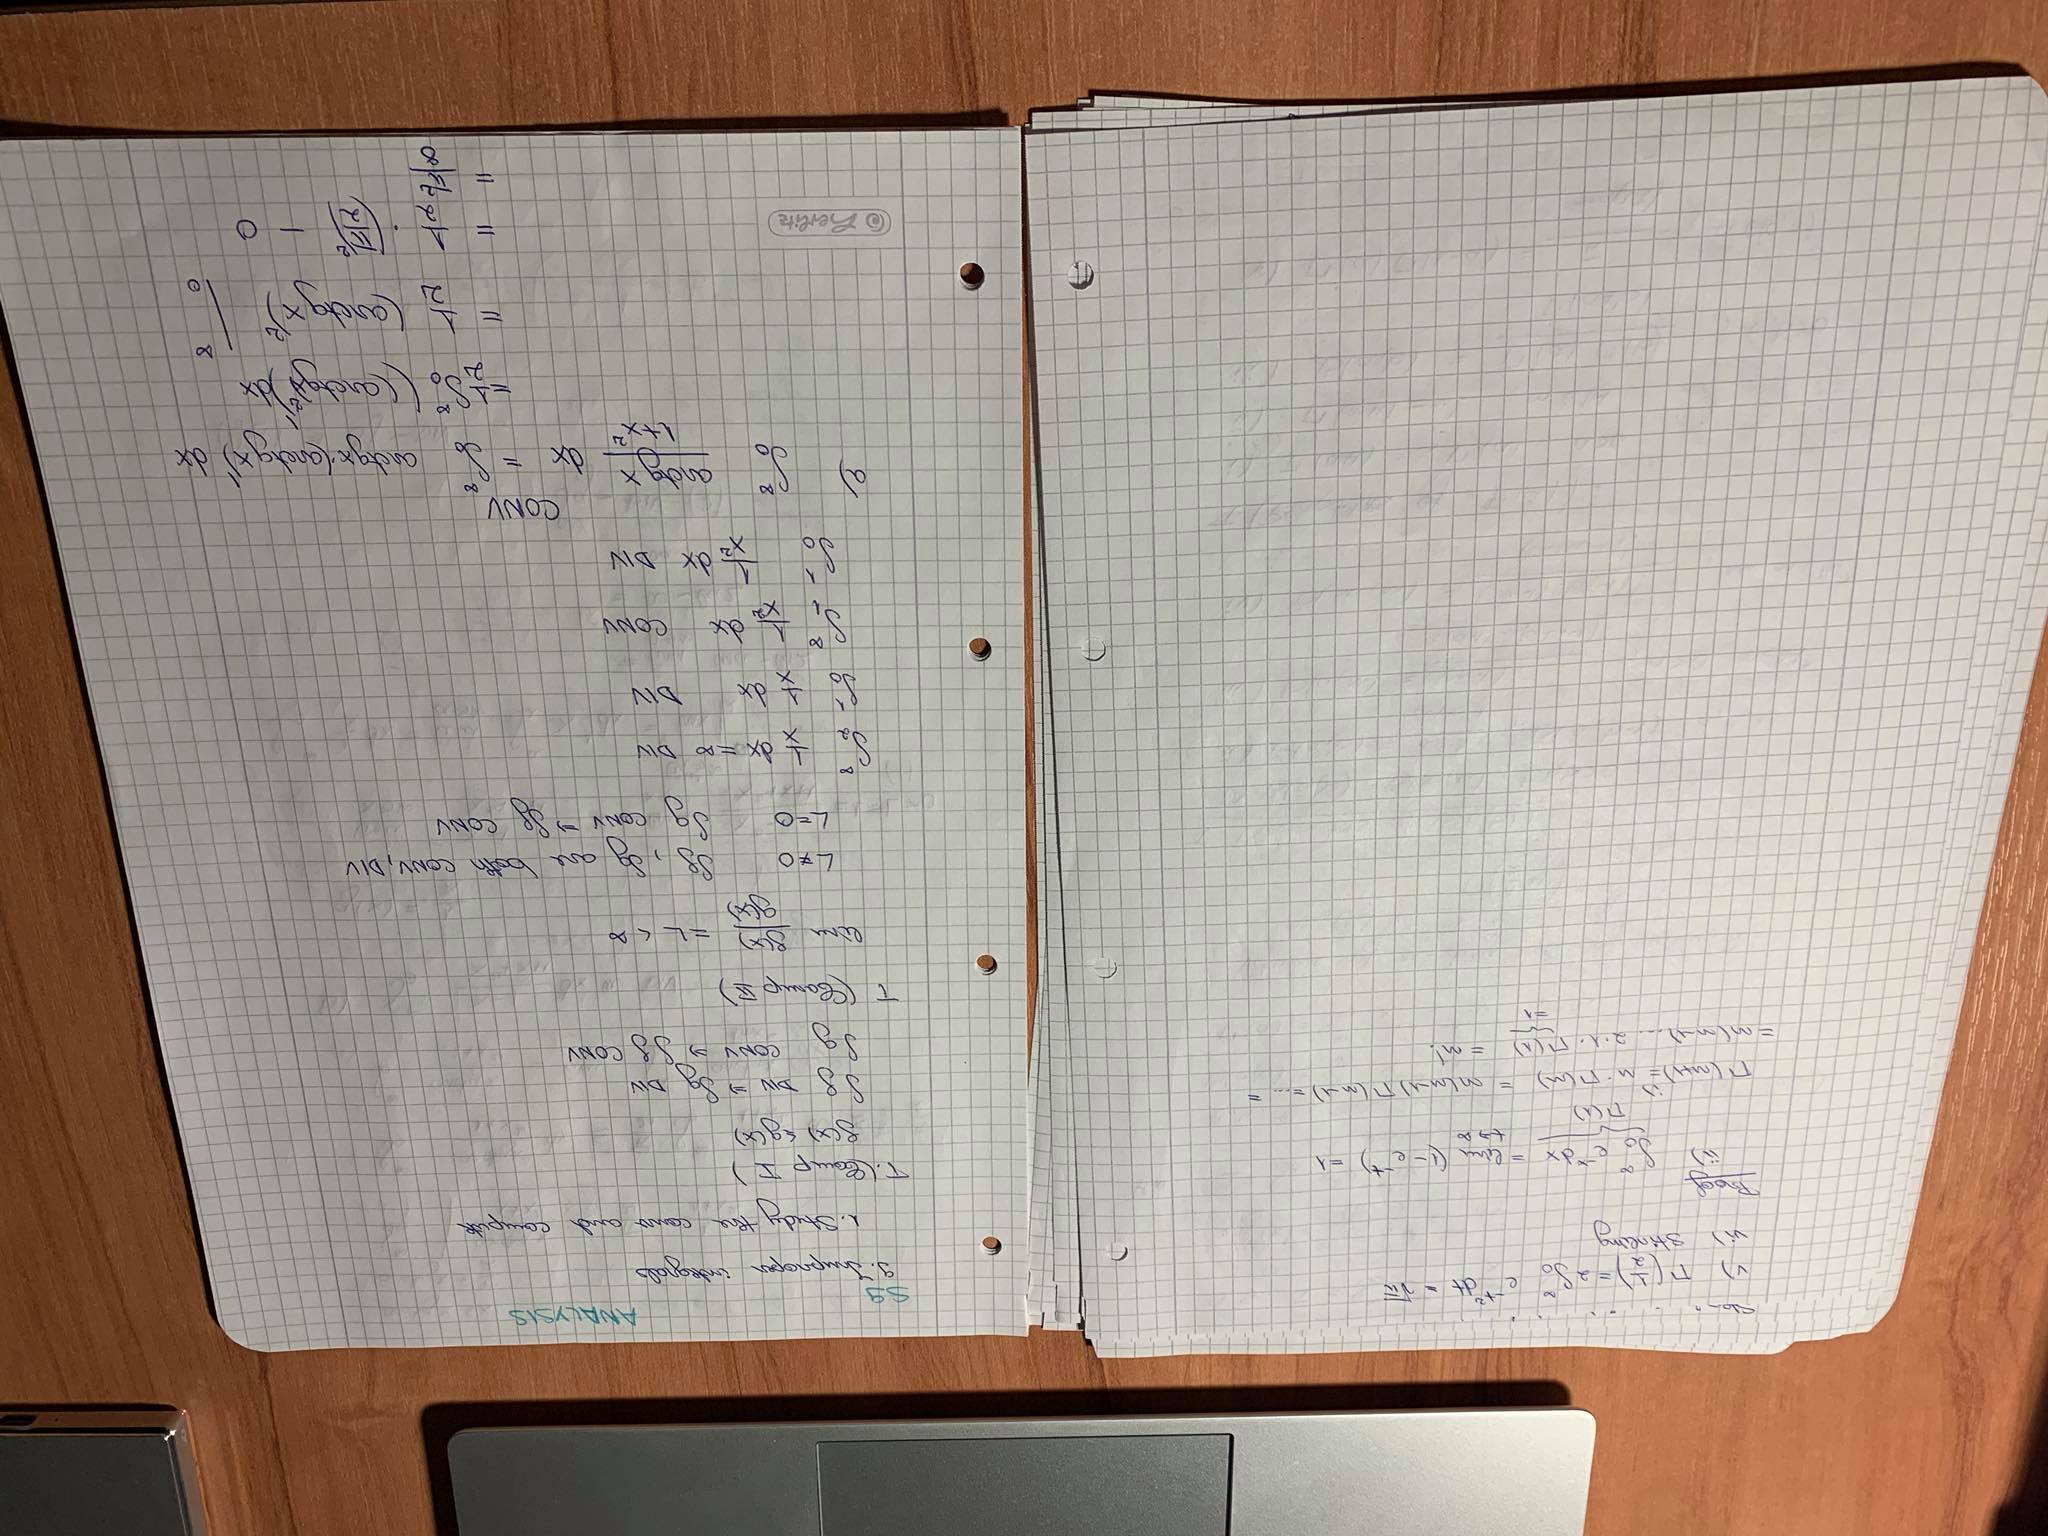 v) Γ(1/2) = 2∫₀^∞ e^{-t²}dt = √π
vi) Stirling
Proof
ii) ∫₀^∞ e^{-x}dx = lim (1-e^{-t}) = 1
t→∞
Γ(1)
Γ(n+1) = n·Γ(n) = n(n-1)Γ(n-1) = ... =
i)
= n(n-1)... 2·1·Γ(1) = n!
=1
ANALYSIS
S9
9. Improper integrals
1. Study the conv and compute
T. (Comp I)
f(x) ≤ g(x)
∫f DIV ⇒ ∫g DIV
∫g CONV ⇒ ∫f CONV
T (Comp II)
lim f(x)/g(x) = L < ∞
L≠0 ∫f, ∫g are both CONV, DIV
L=0 ∫g CONV ⇒ ∫f CONV
∫₂^∞ 1/x dx = ∞ DIV
∫₀¹ 1/x dx DIV
∫₁^∞ 1/x² dx CONV
∫₀¹ 1/x² dx DIV
CONV
a) ∫₀^∞ arctgx/(1+x²) dx = ∫₀^∞ arctgx·(arctgx)' dx
= 1/2 ∫₀^∞ ((arctgx)²)' dx
= 1/2 (arctgx)² |₀^∞
= 1/2 · (π/2)² - 0
= π²/8
Herlitz